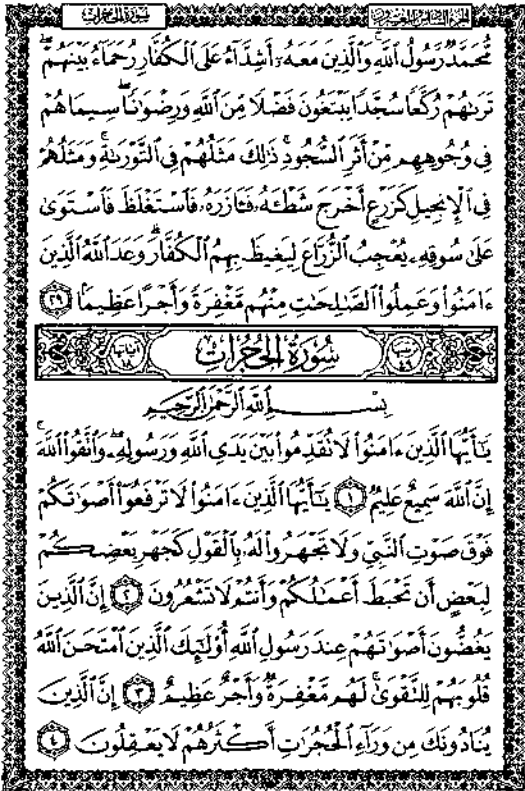 سورة الحجرات
الجزء السادس والعشرون
مُّحَمَّدٌ رَّسُولُ ٱللَّهِ وَٱلَّذِينَ مَعَهُۥٓ أَشِدَّآءُ عَلَى ٱلْكُفَّارِ رُحَمَآءُ بَيْنَهُمْ ۖ
تَرَىٰهُمْ رُكَّعًا سُجَّدًا يَبْتَغُونَ فَضْلًا مِّنَ ٱللَّهِ وَرِضْوَٰنًا ۖ سِيمَاهُمْ
فِى وُجُوهِهِم مِّنْ أَثَرِ ٱلسُّجُودِ ۚ ذَٰلِكَ مَثَلُهُمْ فِى ٱلتَّوْرَىٰةِ ۚ وَمَثَلُهُمْ
فِى ٱلْإِنجِيلِ كَزَرْعٍ أَخْرَجَ شَطْـَٔهُۥ فَـَٔازَرَهُۥ فَٱسْتَغْلَظَ فَٱسْتَوَىٰ
عَلَىٰ سُوقِهِۦ يُعْجِبُ ٱلزُّرَّاعَ لِيَغِيظَ بِهِمُ ٱلْكُفَّارَ ۗ وَعَدَ ٱللَّهُ ٱلَّذِينَ
ءَامَنُوا۟ وَعَمِلُوا۟ ٱلصَّٰلِحَٰتِ مِنْهُم مَّغْفِرَةً وَأَجْرًا عَظِيمًۢا ٢٩
ترتيبها ٤٩ سُورَةُ الحُجُرَاتِ آياتها ١٨
بِسْمِ ٱللَّهِ ٱلرَّحْمَٰنِ ٱلرَّحِيمِ
يَٰٓأَيُّهَا ٱلَّذِينَ ءَامَنُوا۟ لَا تُقَدِّمُوا۟ بَيْنَ يَدَىِ ٱللَّهِ وَرَسُولِهِۦ ۖ وَٱتَّقُوا۟ ٱللَّهَ ۚ
إِنَّ ٱللَّهَ سَمِيعٌ عَلِيمٌ ١ يَٰٓأَيُّهَا ٱلَّذِينَ ءَامَنُوا۟ لَا تَرْفَعُوٓا۟ أَصْوَٰتَكُمْ
فَوْقَ صَوْتِ ٱلنَّبِىِّ وَلَا تَجْهَرُوا۟ لَهُۥ بِٱلْقَوْلِ كَجَهْرِ بَعْضِكُمْ
لِبَعْضٍ أَن تَحْبَطَ أَعْمَٰلُكُمْ وَأَنتُمْ لَا تَشْعُرُونَ ٢ إِنَّ ٱلَّذِينَ
يَغُضُّونَ أَصْوَٰتَهُمْ عِندَ رَسُولِ ٱللَّهِ أُو۟لَٰٓئِكَ ٱلَّذِينَ ٱمْتَحَنَ ٱللَّهُ
قُلُوبَهُمْ لِلتَّقْوَىٰ ۚ لَهُم مَّغْفِرَةٌ وَأَجْرٌ عَظِيمٌ ٣ إِنَّ ٱلَّذِينَ
يُنَادُونَكَ مِن وَرَآءِ ٱلْحُجُرَٰتِ أَكْثَرُهُمْ لَا يَعْقِلُونَ ٤